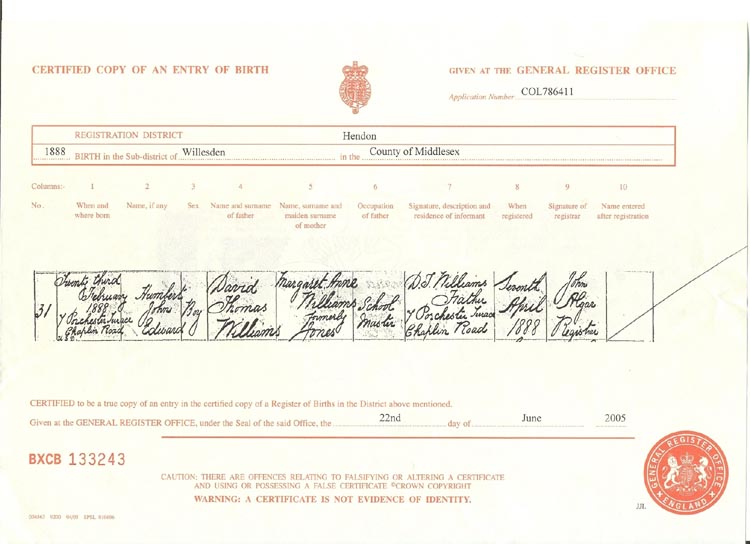 CERTIFIED COPY OF AN ENTRY OF BIRTH
GIVEN AT THE GENERAL REGISTER OFFICE
Application Number COL786411
REGISTRATION DISTRICT Hendon
1888 BIRTH in the Sub-district of Willesden in the County of Middlesex
Columns:- 1 2 3 4 5 6 7 8 9 10
No. When and where born Name, if any Sex Name and surname of father Name, surname and maiden surname of mother Occupation of father Signature, description and residence of informant When registered Signature of registrar Name entered after registration
31
Twenty third February 1888 7 Porchester Terrace Chaplin Road
John Edward
Boy
David Thomas Williams
Margaret Anne Williams formerly Jones
School Master
D.T. Williams Father 7 Porchester Terrace Chaplin Road
Seventh April 1888
John Algar Registrar
CERTIFIED to be a true copy of an entry in the certified copy of a Register of Births in the District above mentioned.
Given at the GENERAL REGISTER OFFICE, under the Seal of the said Office, the 22nd day of June 2005
BXCB 133243
CAUTION: THERE ARE OFFENCES RELATING TO FALSIFYING OR ALTERING A CERTIFICATE
AND USING OR POSSESSING A FALSE CERTIFICATE ©CROWN COPYRIGHT
WARNING: A CERTIFICATE IS NOT EVIDENCE OF IDENTITY.
GENERAL REGISTER OFFICE ENGLAND